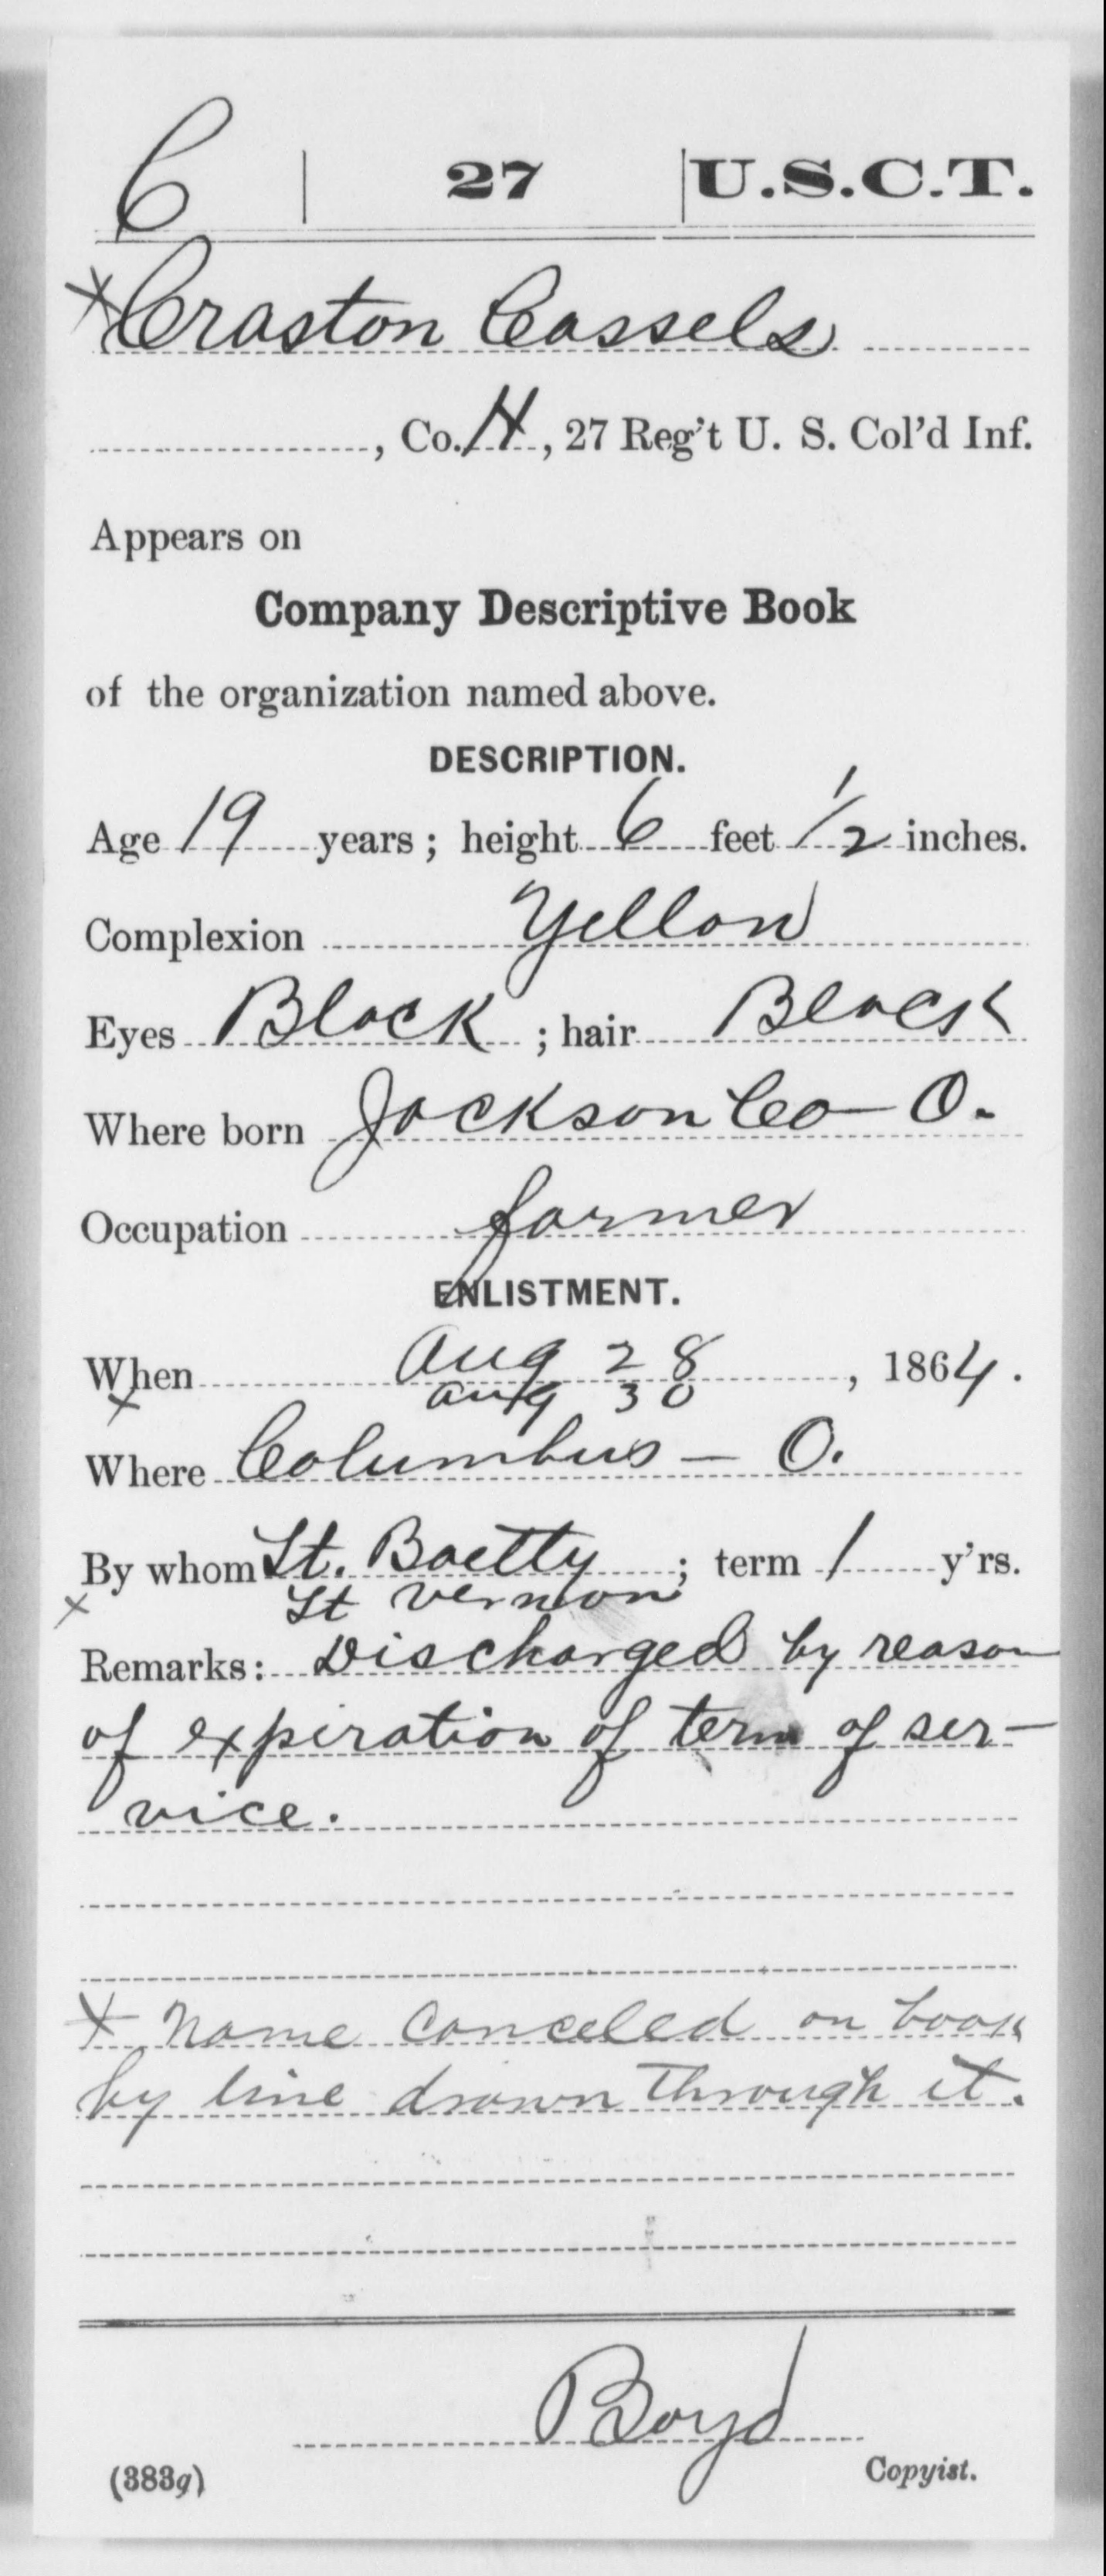 C | 27 | U.S.C.T.
x Craston Cassels
, Co. H, 27 Reg't U. S. Col'd Inf.
Appears on
Company Descriptive Book
of the organization named above.
DESCRIPTION.
Age 19 years; height 6 feet 1/2 inches.
Complexion Yellow
Eyes Black; hair Black
Where born Jackson Co - O.
Occupation farmer
ENLISTMENT.
When Aug 28, 1864.
x Aug 30
Where Columbus - O.
By whom Lt. Baetty; term 1 y'rs.
x Lt Vernon
Remarks: Discharged by reason
of expiration of term of ser-
vice.
x Name Canceled on book
by line drawn through it.
Boyd
(383g) Copyist.